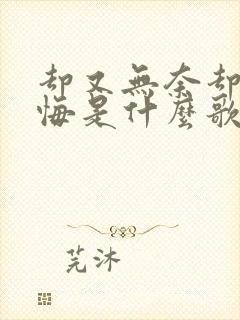 却又無奈却
悔是什麼歌
芫沐